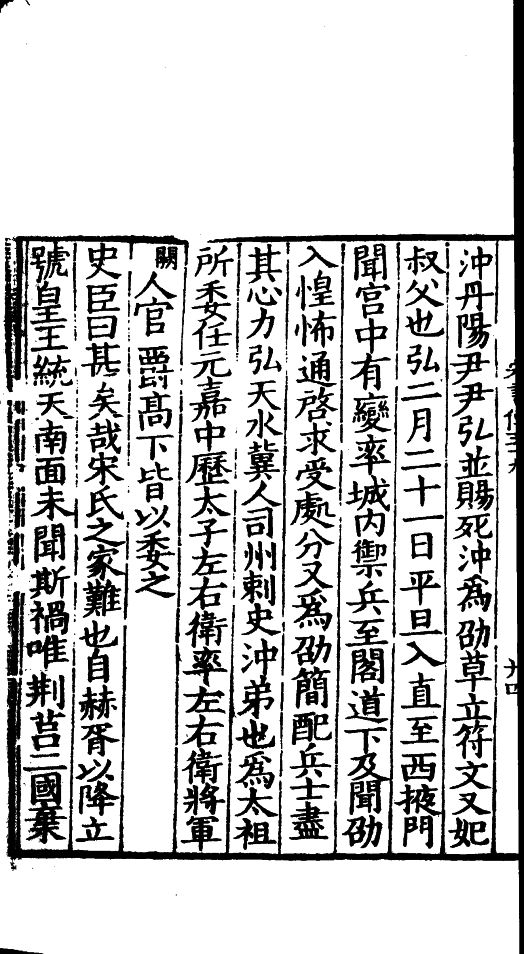 沖丹陽尹尹弘並賜死沖爲劭草立符文又妃
叔父也弘二月二十一日平旦入直至西掖門
聞宫中有變率城内禦兵至閣道下及聞劭
入惶怖通啓求受處分又爲劭簡配兵士盡
其心力弘天水冀人司州刺史沖弟也爲太祖
所委任元嘉中歷太子左右衛率左右衛將軍
闕
人官爵髙下皆以委之
史臣曰甚矣哉宋氏之家難也自赫胥以降立
號皇王統天南面未聞斯禍唯荆莒二國棄